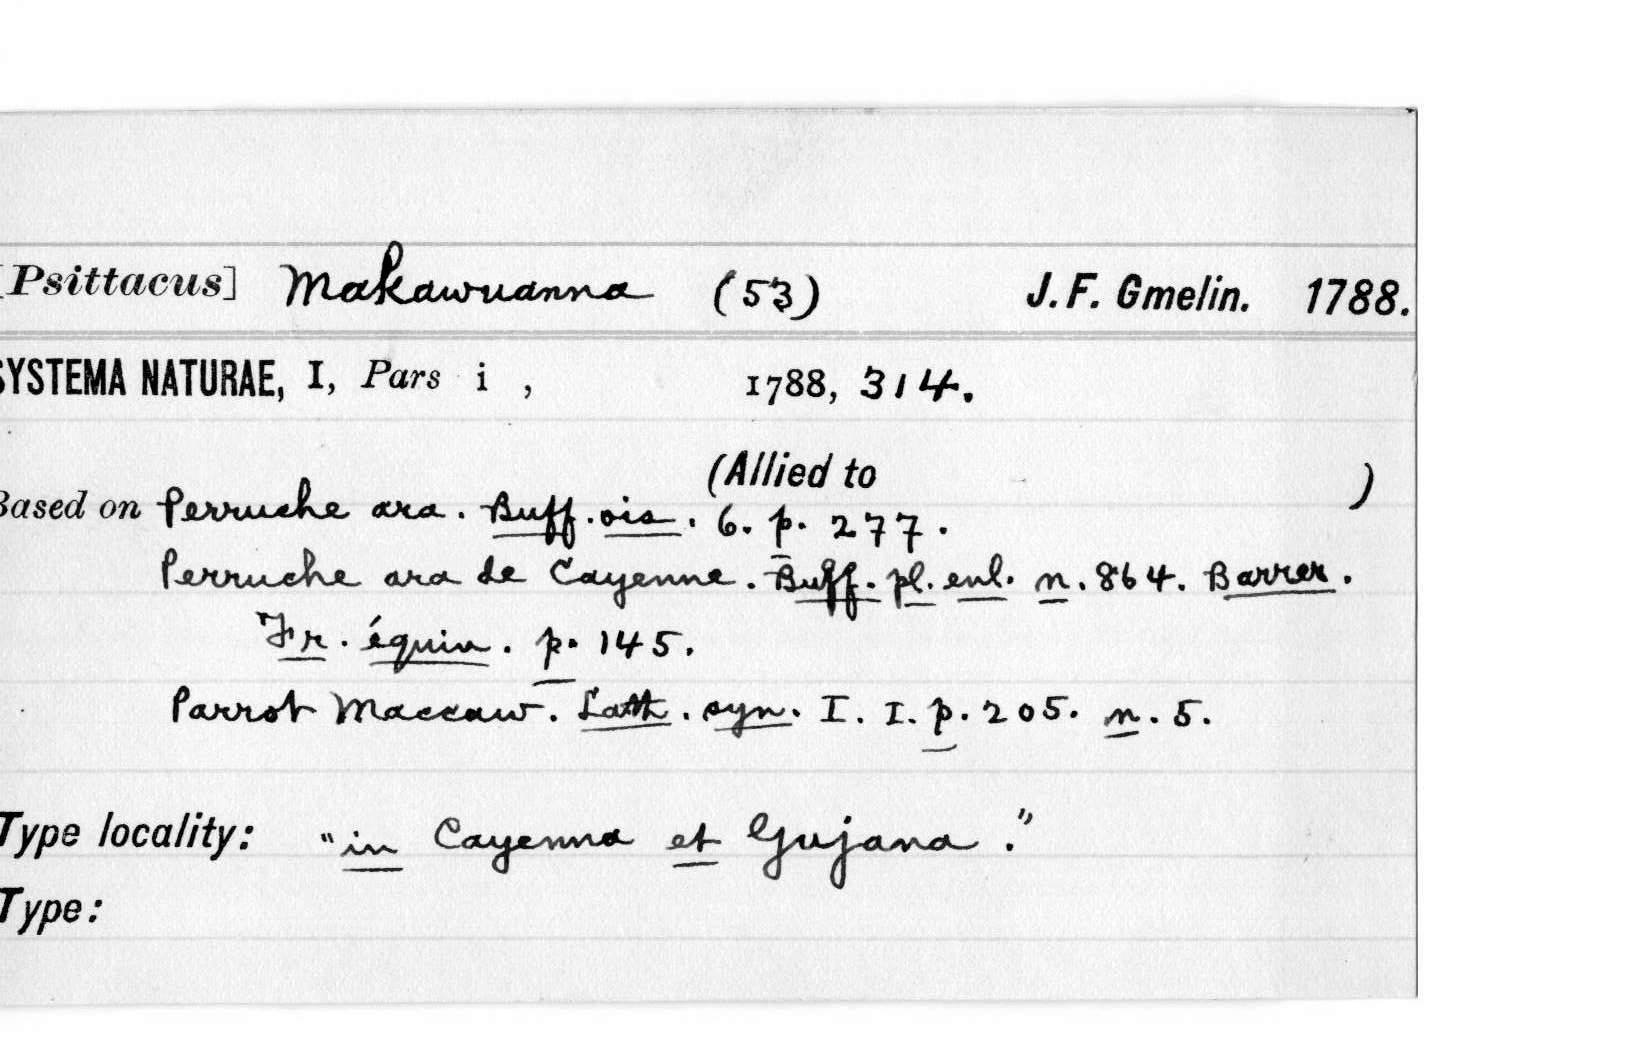 [Psittacus] Makawuanna (53) J. F. Gmelin. 1788.
SYSTEMA NATURAE, I, Pars i , 1788, 314.
(Allied to )
Based on Perruche ara. Buff. ois. 6. p. 277.
Perruche ara de Cayenne. Buff. pl. enl. n. 864. Barrer.
Fr. équin. p. 145.
Parrot Maccaw. Lath. syn. I. I. p. 205. n. 5.
Type locality: "in Cayenna et Gujana."
Type: